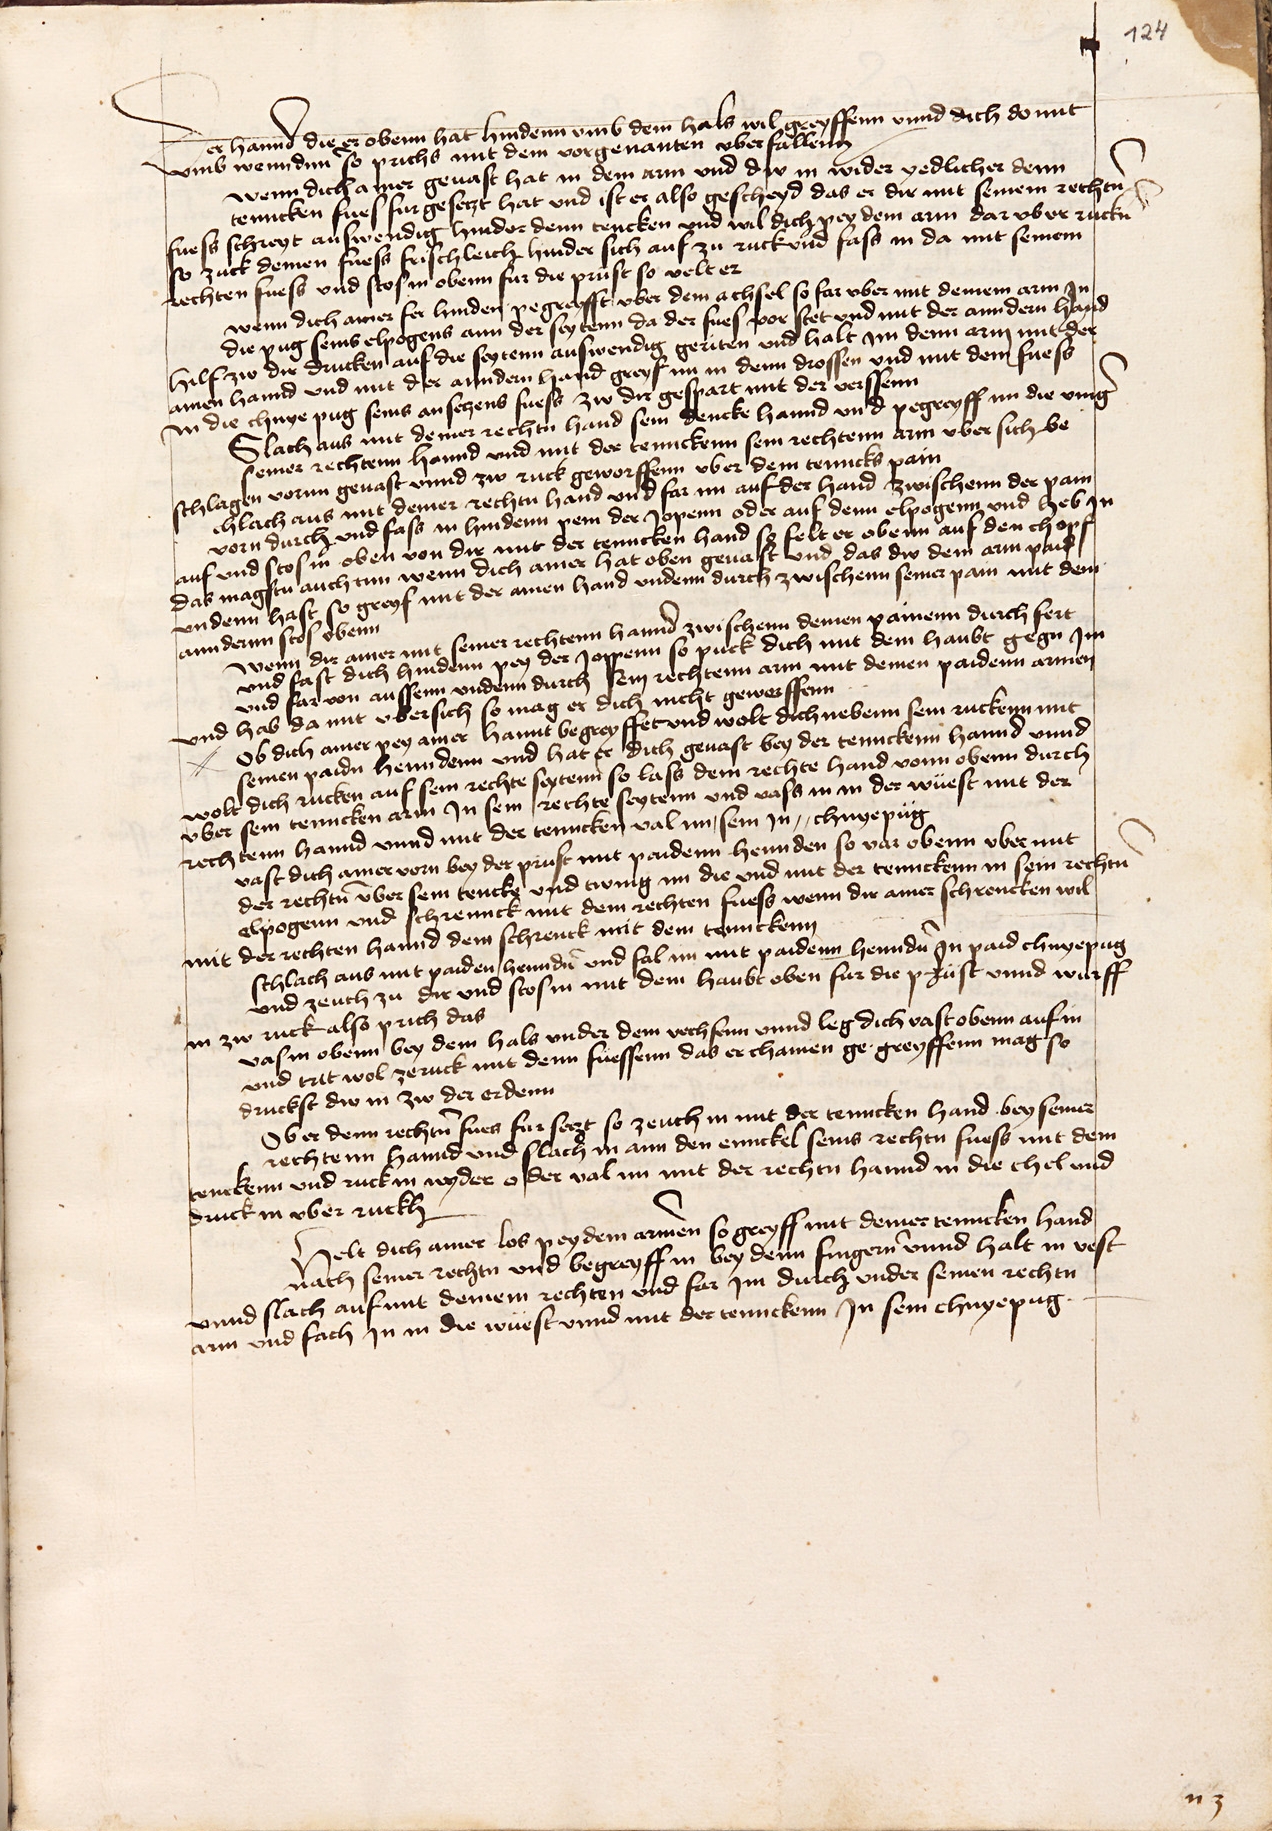 124
er hannd die er obenn hat hindenn vmb dem hals wil greyffenn vnnd dich do mit
vmb wenndnn so prichs mit dem vorgenanten vberfallenn
wenn dich ainer geuast hat in dem arm vnd dw in wider yedlicher denn
tenncken fues fur gesetzt hat vnd ist er also gescheyd das er dir mit seinem rechtn
fuess schreyt auswendig hinder denn tencken vnd wil dich pey dem arm dar vber ruckn
so zuck deinen fuess frischleich hinder sich auf zu ruck vnd fass in da mit seinem
rechten fuess vnd stos in obenn fur die prust so velt er
wenn dich ainer fer hinden pegreyfft vber dem achsel so far vber mit deinem arm In
die pug seins elpogens ann der seytenn da der fues vor stet vnd mit der anndern hand
hilf zw dir drucken auf die seytenn auswendig geriten vnd halt im denn arm mit der
ainen hannd vnd mit der anndern hand greyf im in denn drossen vnd mit dem fuess
In die chnye pug seins ansetzens fuess zw dir gespart mit der verssenn
Slach aus mit deiner rechtn hand sein dencke hannd vnd pegreyff im die vinger
seiner rechtenn hannd vnd mit der tennckenn sein rechtenn arm vber sich be
schlagen vorun geuast vnnd zw ruck geworffenn vber dem tenncks pain
chlach aus mit deiner rechtn hand vnd far im auf der hand zwischenn der pain
vorn durch vnd fass in hindenn pein der Jopenn oder auf denn elpogenn vnd heb In
auf vnd stos in oben von dir mit der tenncken hand so felt er obenn auf den chopf
das magstu auch tun wenn dich ainer hat oben geuast vnd das dw dem arm paid
vndenn hast so greyf mit der ainen hand vndenn durch zwischenn seiner pain mit dem
anndernn stos obenn
Wenn dir ainer mit seiner rechtenn hannd zwischenn deinen painenn durch fert
vnd fast dich hindenn pey der Joppenn so puck dich mit dem haubt gegn Im
vnd far von aussenn vndenn durch sein rechtenn arm mit deinen paidenn armen
vnd hab da mit vbersich so mag er dich nicht geworffenn
Ob dich ainer pey ainer hannt begreyffet vnd wolt dich nebenn sein ruckenn mit
seinen paidn henndenn vnd hat er dich geuast bey der tennckenn hannd vnnd
wolt dich rucken auf sein rechte seytenn so lass dein rechte hand vonn obenn durch
vber sein tenncken arm In sein rechte seytenn vnd vass in in der wuest mit der
rechtenn hannd vnnd mit der tenncken val im sein In chnyepug
vast dich ainer vorn bey der prust mit paidenn hennden so var obenn vber mit
der rechtn vber sein tencke vnd twing im die vnd mit der tennckenn in sein rechtn
elpogenn vnd schrennck mit dem rechten fuess wenn dir ainer schrencken wil
mit der rechten hannd dem schrenck mit dem tennckenn
schlach aus mit paiden henndn vnd fal im mit paidenn henndn In paid chnyepug
vnd zeuch zu dir vnd stos in mit dem haubt oben fur die prust vnnd wurff
in zw ruck also prich das
vas in obenn bey dem hals vnder dem vechsenn vnnd leg dich vast obenn auf in
vnd trit wol zeruck mit denn fuessenn das er chainen ge greyffenn mag so
druckst dw in zw der erdenn
Ob er denn rechtn fues fur setzt so zeuch in mit der tenncken hand bey seiner
rechtenn hannd vnd slach in ann den ennckel seins rechtn fuess mit dem
tenckenn vnd ruck in wyder oder val im mit der rechtn hannd in die chel vnd
druck in vber ruckh
Helt dich ainer los pey dem armen so greyff mit deiner tenncken hand
nach seiner rechtn vnd begreyff in bey denn fingern vnnd halt in vest
vnnd slach auf mit deinem rechten vnd far im durch vnder seinen rechtn
arm vnd fach In in die wuest vnnd mit der tennckenn In sein chnyepug
n 3